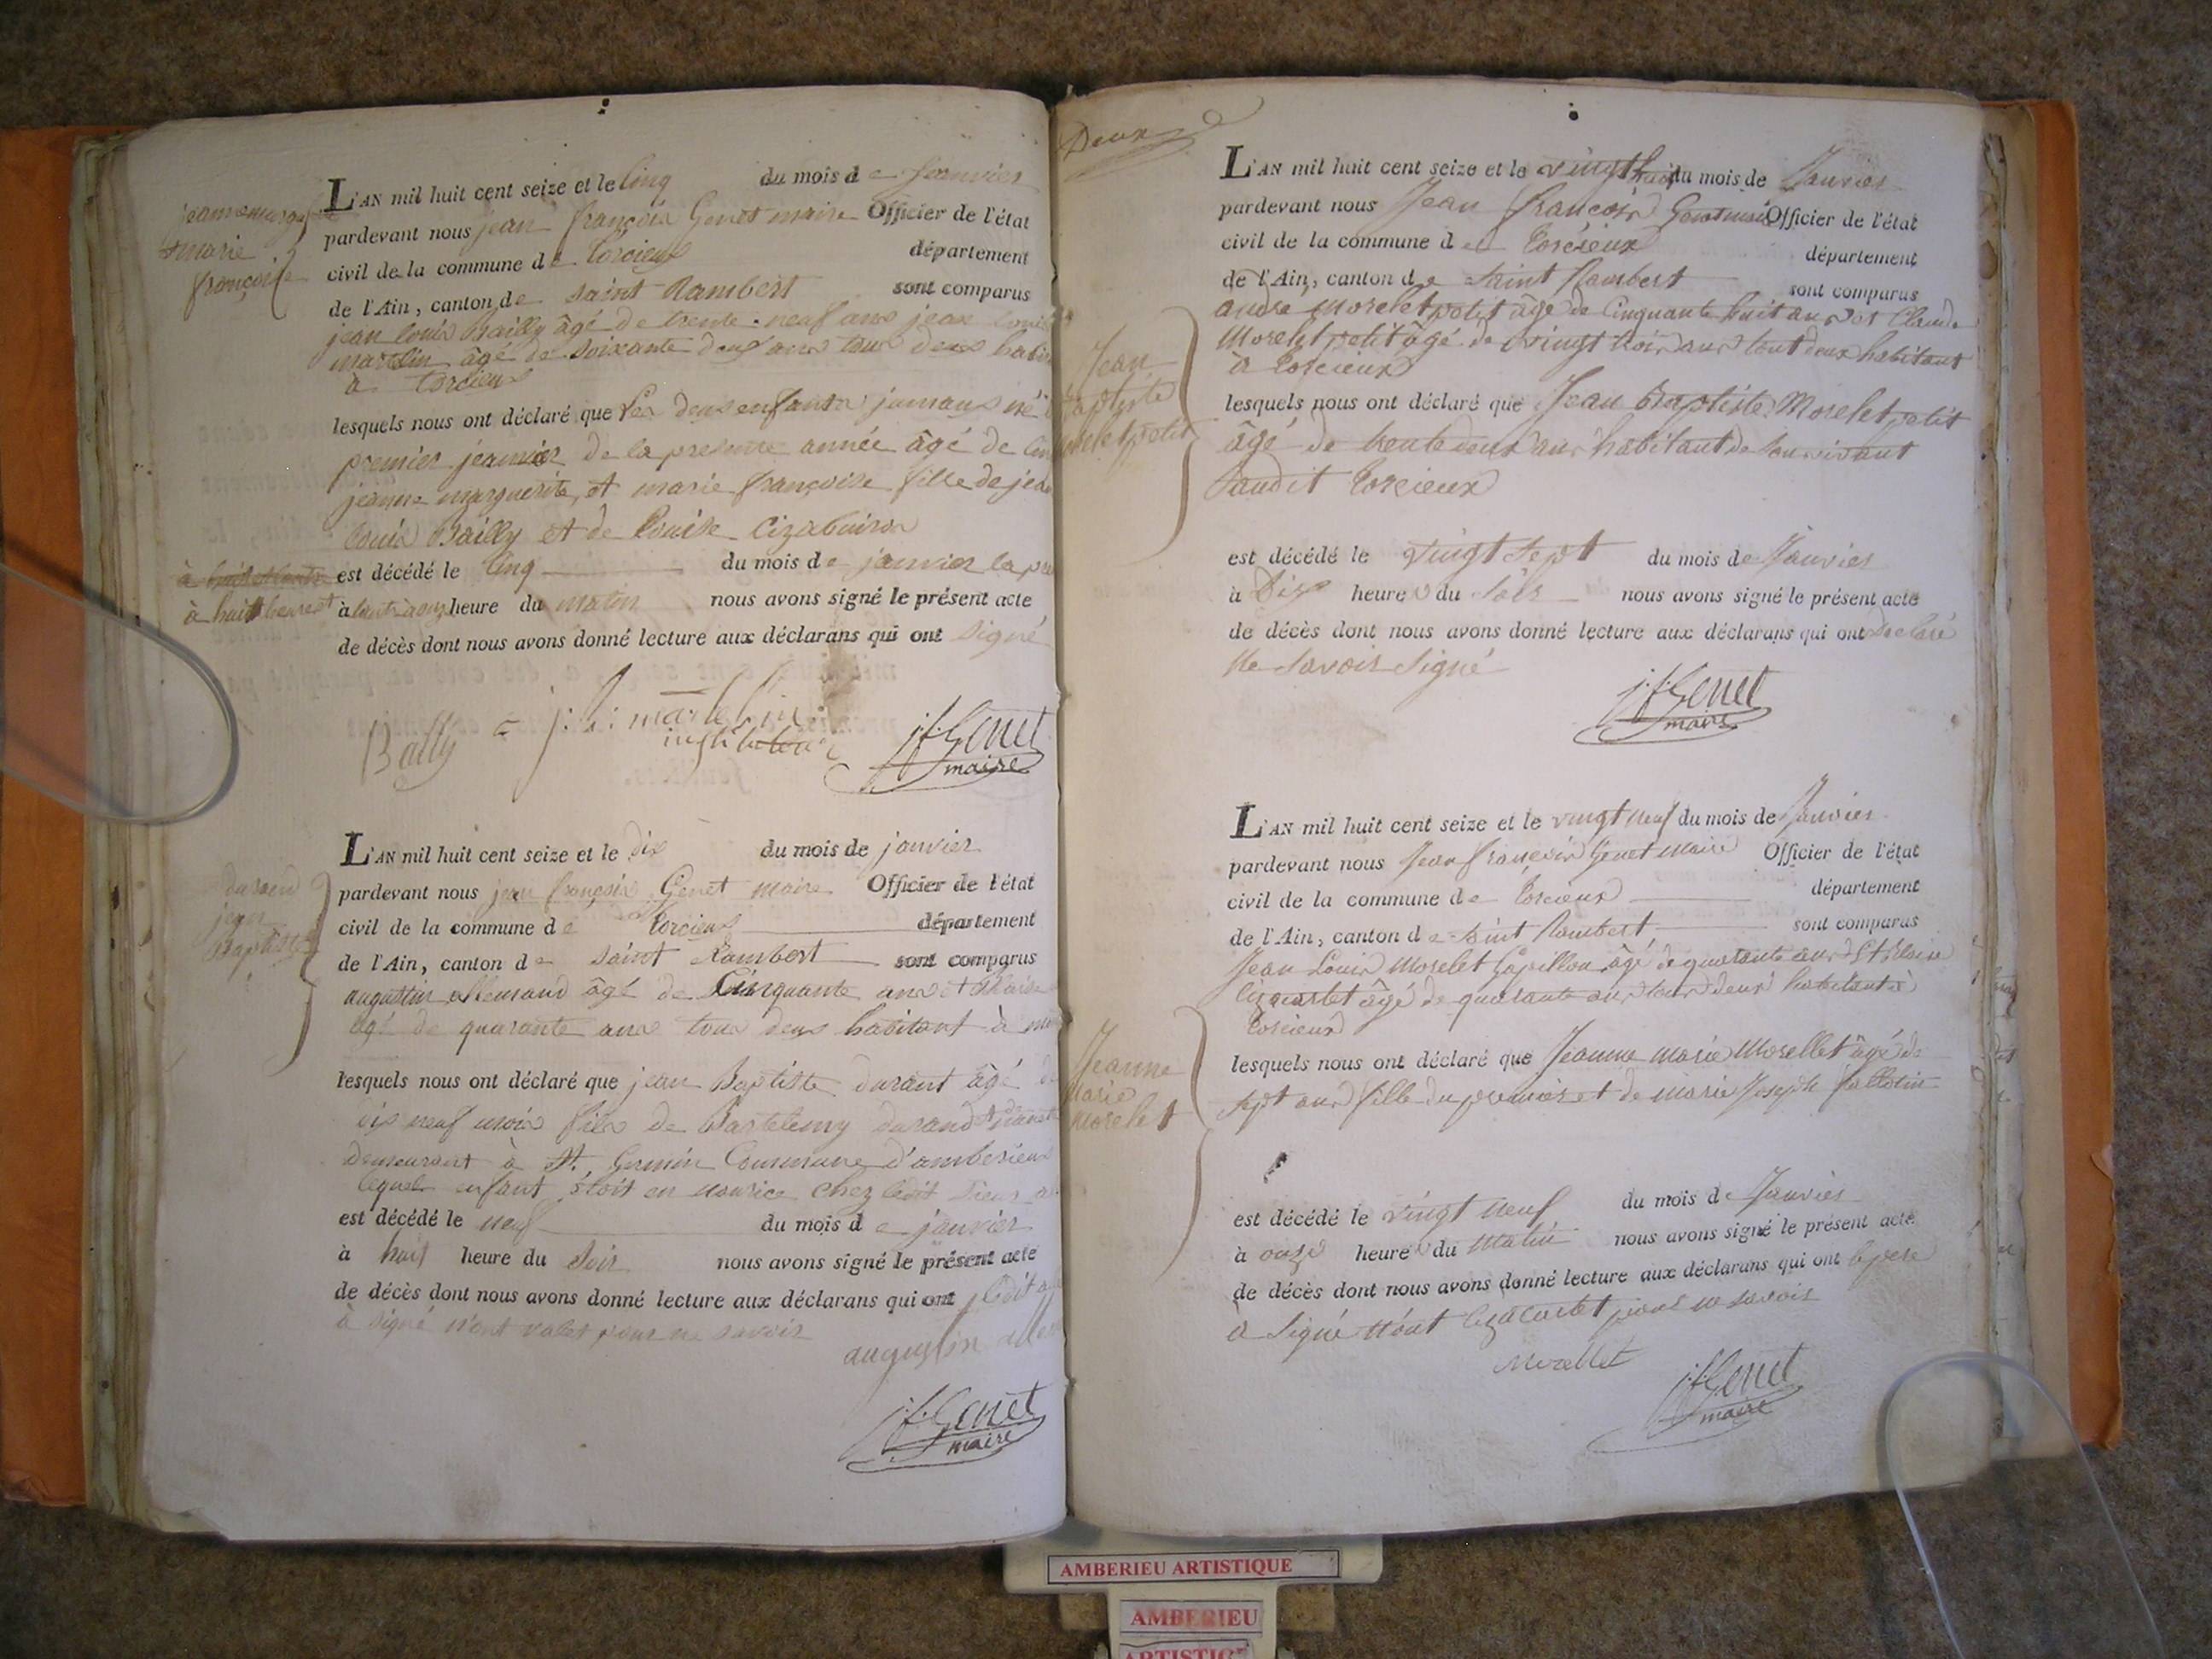 L'AN mil huit cent seize et le cinq du mois de jeanvier
pardevant nous jean françois Genet maire Officier de l'état
civil de la commune de torcieux département
de l'Ain, canton de saint Rambert sont comparus
jean louis Bailly âgé de trente neuf ans jean louis
martelin âgé de soixante deux ans tous deux
à torcieux
lesquels nous ont déclaré que Les deux enfants jumaux né
premier jeanvier de la presente année âgé de
jeanne marguerite, et marie françoise fille de
louis Bailly et de Louise
marie
françoise
est décédé le cinq du mois de janvier
à huit heure et
à heure du matin nous avons signé le présent acte
de décès dont nous avons donné lecture aux déclarans qui ont signé
Bailly = j: l: martelin
instituteur
j.f. Genet
maire
L'AN mil huit cent seize et le dix du mois de janvier
pardevant nous jean françois Genet maire Officier de l'état
civil de la commune de torcieux département
de l'Ain, canton de saint Rambert sont comparus
augustin allemand âgé de Cinquante ans et
âgé de quarante ans tous deux habitant à
durand
jean
Baptiste
lesquels nous ont déclaré que jean Baptiste durant âgé de
dix neuf mois fils de Bartelemy durand et
demeurant à St. Germin Commune d'amberieux
lequel enfant étoit en nourice chez ledit sieur
est décédé le neuf du mois de janvier
à huit heure du soir nous avons signé le présent acte
de décès dont nous avons donné lecture aux déclarans qui ont ledit
à signé n'ont valet pour ne savoir
augustin
j.f. Genet
maire
Deux
L'AN mil huit cent seize et le vingt huit du mois de Janvier
pardevant nous Jean françois Genet maire Officier de l'état
civil de la commune de torcieux département
de l'Ain, canton de Saint Rambert sont comparus
andré Morelet petit âgé de Cinquante huit ans et Claude
Morelet petit âgé de vingt trois ans tout deux habitant
à torcieux
Jean
Baptiste
Morelet petit
lesquels nous ont déclaré que Jean Baptiste Morelet petit
âgé de trente deux ans habitant de son vivant
audit torcieux
est décédé le vingt sept du mois de Janvier
à Dix heure du soir nous avons signé le présent acte
de décès dont nous avons donné lecture aux déclarans qui ont declaré
ne savoir signé
j.f. Genet
maire
L'AN mil huit cent seize et le vingt neuf du mois de Janvier
pardevant nous Jean françois Genet maire Officier de l'état
civil de la commune de torcieux département
de l'Ain, canton de saint Rambert sont comparus
Jean Louis Morelet Papillon âgé de quarante ans et Blaise
âgé de quarante ans tous deux habitant à
torcieux
Jeanne
Marie
Morelet
lesquels nous ont déclaré que Jeanne Marie Morellet âgé de
sept ans fille du premier et de marie Joseph
est décédé le vingt neuf du mois de Janvier
à onze heure du Matin nous avons signé le présent acte
de décès dont nous avons donné lecture aux déclarans qui ont le pere
a signé n'ont pour ne savoir
Morellet
j.f. Genet
maire
AMBERIEU ARTISTIQUE
AMBERIEU